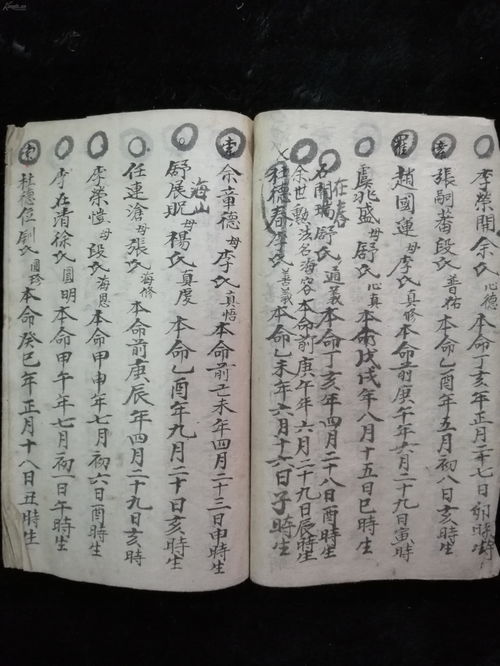 李榮開余氏心德本命丁亥年正月二十七日卯時生
張嗣蕃段氏普祐本命乙酉年五月初八日亥時生
羅
趙國運母李氏真修本命前庚午年六月二十九日寅時
虞兆盛母舒氏心真本命戊戌年八月十五日巳時生
在春
石開瑞舒氏道義本命丁亥年四月二十八日酉時生
余世勲法名海容本命前庚午年六月二十九日辰時生
杜德春李氏善義本命乙未年六月十六日子時生
余章德母李氏真悟本命前乙未年四月二十三日申時生
海山
舒展昵母楊氏真虔本命乙酉年九月二十日亥時生
任連滄母張氏海修本命前庚辰年四月二十九日亥時
李榮愷母段氏海恩本命甲申年七月初六日酉時生
李在清徐氏圓明本命甲午年七月初一日午時生
杜德位劉氏圓珍本命癸巳年正月十八日丑時生